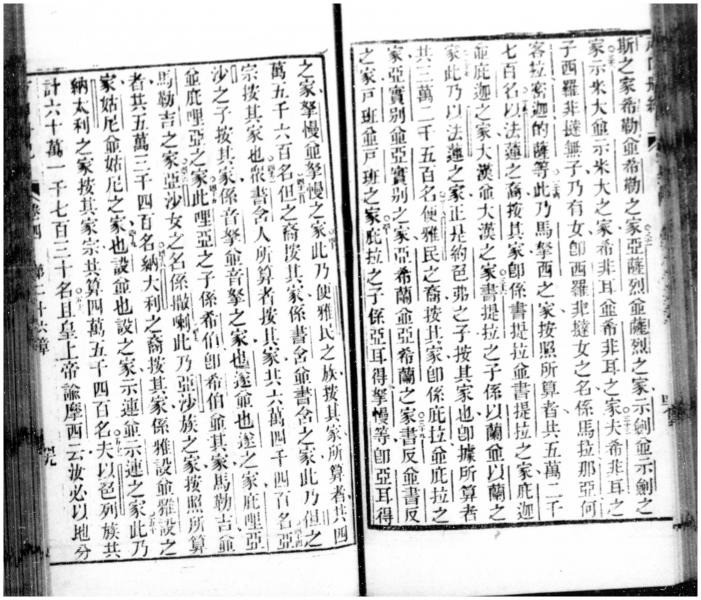 斯之家希勒爺希勒之家亞薩烈爺薩烈之家示劍爺示劍之
家示米大爺示米大之家希非耳爺希非耳之家夫希非耳之
子西羅非撻無子乃有女卽西羅非撻女之名係馬拉那亞何
客拉密迦的薩等此乃馬拏西之家按照所算者共五萬二千
七百名以法蓮之裔按其家卽係書提拉爺書提拉之家庇迦
爺庇迦之家大漢爺大漢之家書提拉之子係以蘭爺以蘭之
家此乃以法蓮之家正是約色弗之子按其家也卽據所算者
共三萬二千五百名便雅民之裔按其家卽係庇拉爺庇拉之
家亞實別爺亞實別之家亞希蘭爺亞希蘭之家書反爺書反
之家戸班爺戸班之家庇拉之子係亞耳得拏慢等卽亞耳得
之家拏慢爺拏慢之家此乃便雅民之族按其家所算者共四
萬五千六百名但之裔按其家係書含爺書含之家此乃但之
宗按其家也衆書含人所算者按其家共六萬四千四百名亞
沙之子按其家係音拏爺音拏之家也遂爺也遂之家庇哩亞
爺庇哩亞之家此哩亞之子係希伯卽希伯爺其家馬勒吉爺
馬勒吉之家亞沙女之名係撒喇此乃亞沙族之家按照所算
者共五萬三千四百名納大利之裔按其家係雅設爺雅設之
家姑尼爺姑尼之家也設爺也設之家示連爺示連之家此乃
納太利之家按其家宗其算四萬五千四百名夫以色列族共
計六十萬一千七百三十名且皇上帝諭摩西云汝必以地分
卷四 第二十六章